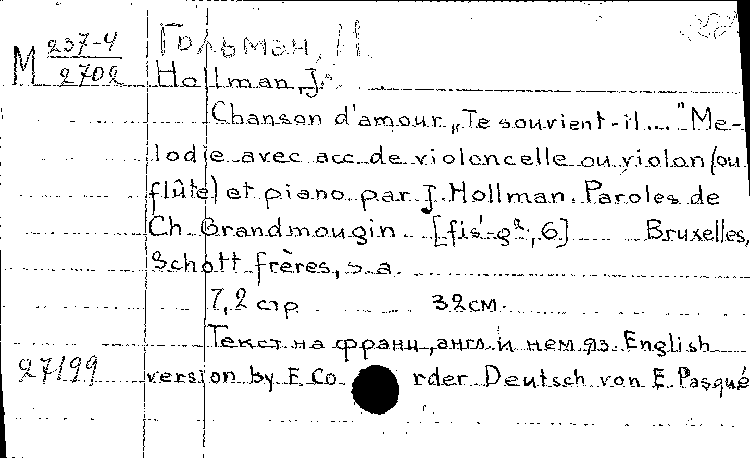 М 237-4
2702
Гольман, И.
Hollman, J.
Chanson d'amour „Te souvient-il..." Me-
lodie avec acc. de violoncelle ou violon (ou
flûte) et piano par J. Hollman. Paroles de
Ch. Grandmougin. [fis¹-g²; 6] Bruxelles,
Schott frères, s. a.
7, 2 стр. 32 см.
Текст на франц., англ. и нем. яз. English
27199 version by F. Co rder Deutsch von E. Pasqué